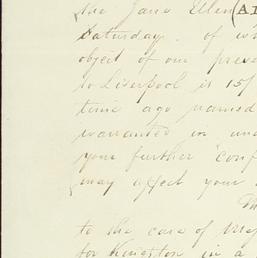 the Jane Ellen (A1
Saturday. of wh
object of our prese
to Liverpool is 15/
time ago named
warranted in und
your further "conf
may affect your
to the care of Mess
for Kingston in a